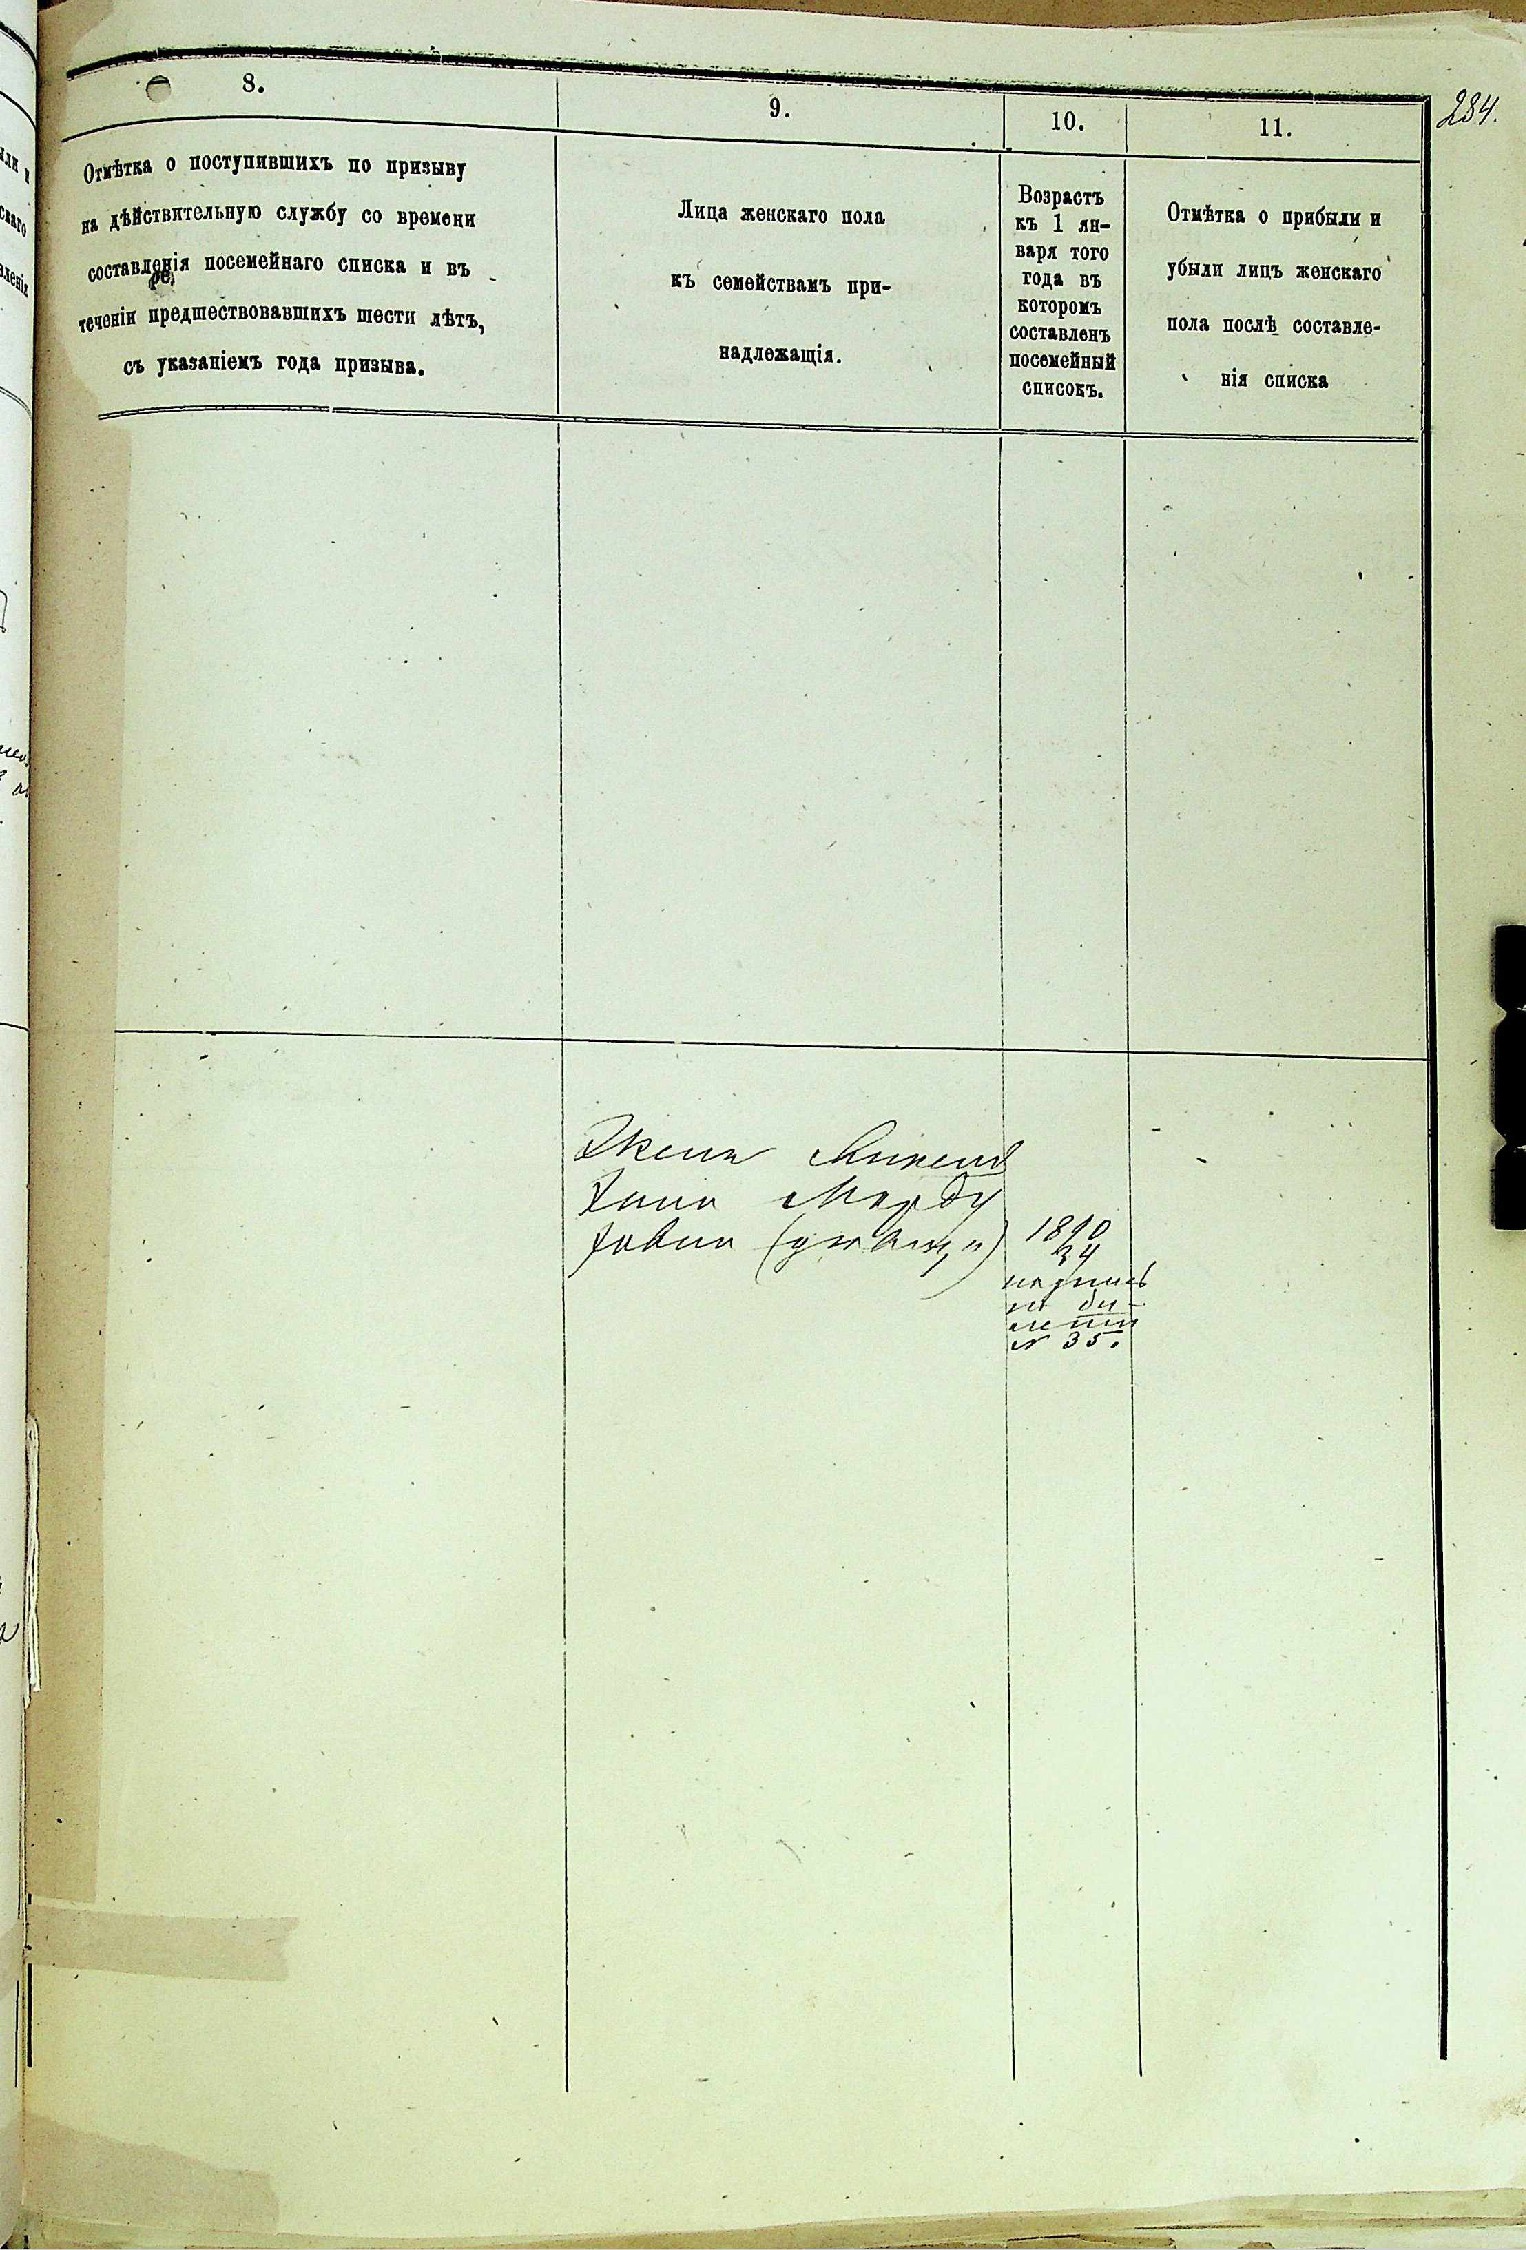 284.
8.
9.
10.
11.
Отмѣтка о поступившихъ по призыву
на дѣйствительную службу со времени
составленія посемейнаго списка и въ
теченіи предшествовавшихъ шести лѣтъ,
съ указаніемъ года призыва.
Лица женскаго пола
къ семействамъ при-
надлежащія.
Возрастъ
къ 1 ян-
варя того
года въ
которомъ
составленъ
посемейный
списокъ.
Отмѣтка о прибыли и
убыли лицъ женскаго
пола послѣ составле-
нія списка
Жена
(девица)
1890
34
по би-
лету
№ 35.